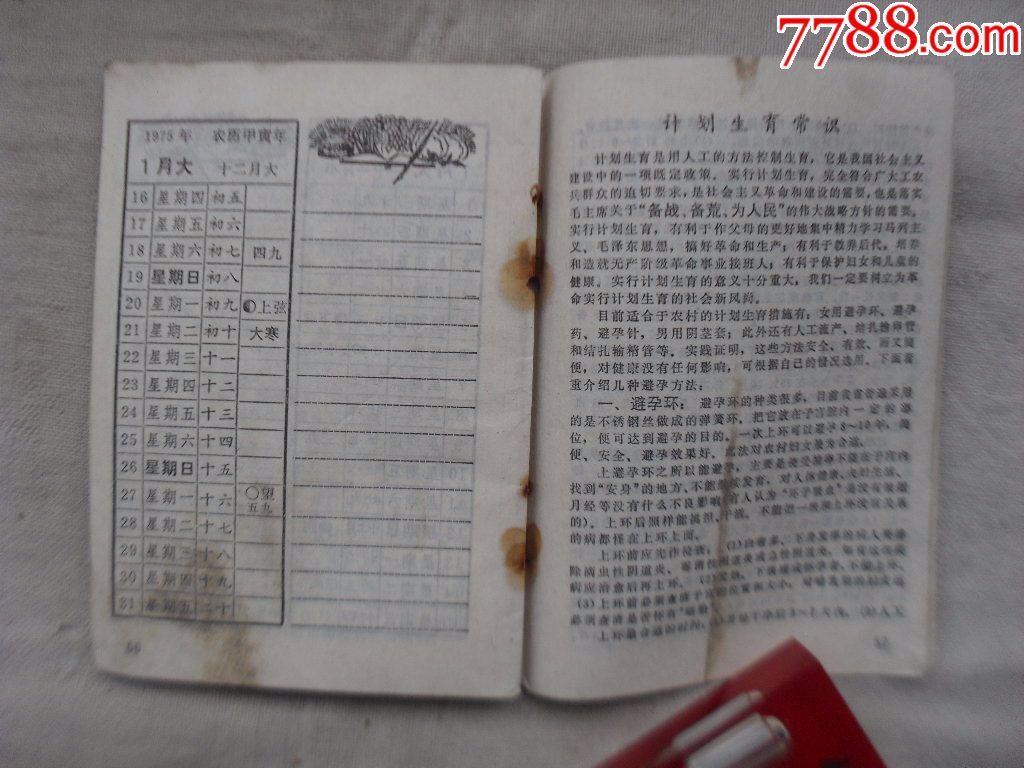 7788.com
1975年 农历甲寅年
1月大 十二月大
16 星期四 初五
17 星期五 初六
18 星期六 初七 四九
19 星期日 初八
20 星期一 初九 上弦
21 星期二 初十 大寒
22 星期三 十一
23 星期四 十二
24 星期五 十三
25 星期六 十四
26 星期日 十五
27 星期一 十六 ○望 五九
28 星期二 十七
29 星期三 十八
30 星期四 十九
31 星期五 二十
56
计划生育常识
计划生育是用人工的方法控制生育，它是我国社会主义
建设中的一项既定政策。实行计划生育，完全符合广大工农
兵群众的迫切要求，是社会主义革命和建设的需要，也是落实
毛主席关于“备战、备荒、为人民”的伟大战略方针的需要。
实行计划生育，有利于作父母的更好地集中精力学习马列主
义、毛泽东思想，搞好革命和生产；有利于教养后代，培养
和造就无产阶级革命事业接班人；有利于保护妇女和儿童的
健康。实行计划生育的意义十分重大，我们一定要树立为革
命实行计划生育的社会新风尚。
目前适合于农村的计划生育措施有：女用避孕环、避孕
药、避孕针，男用阴茎套；此外还有人工流产、结扎输卵管
和结扎输精管等。实践证明，这些方法安全、有效、而又简
便，对健康没有任何影响，可根据自己的情况选用。下面着
重介绍几种避孕方法：
一、避孕环：避孕环的种类很多，目前我省普遍采用
的是不锈钢丝做成的弹簧环，把它放在子宫腔内一定的部
位，便可达到避孕的目的。一次上环可以避孕8～10年，简
便、安全、避孕效果好。此法对农村妇女最为合适。
上避孕环之所以能避孕，主要是使受精卵不能在子宫内
找到“安身”的地方，不能继续发育，对人体健康、夫妇生活、
月经等没有什么不良影响（有人认为
的）。上环后照样能挑担、干活。不能把一些和上环没有关系
的病都怪在上环上面。
上环前应先作检查：（1）白带多、
除滴虫性阴道炎、霉菌性阴道炎或急性阴道炎，
病应治愈后再上环。（2）
（3）上环前必须查清子宫的位置和大小，
必须查清是否怀有
上环最合适的时间：